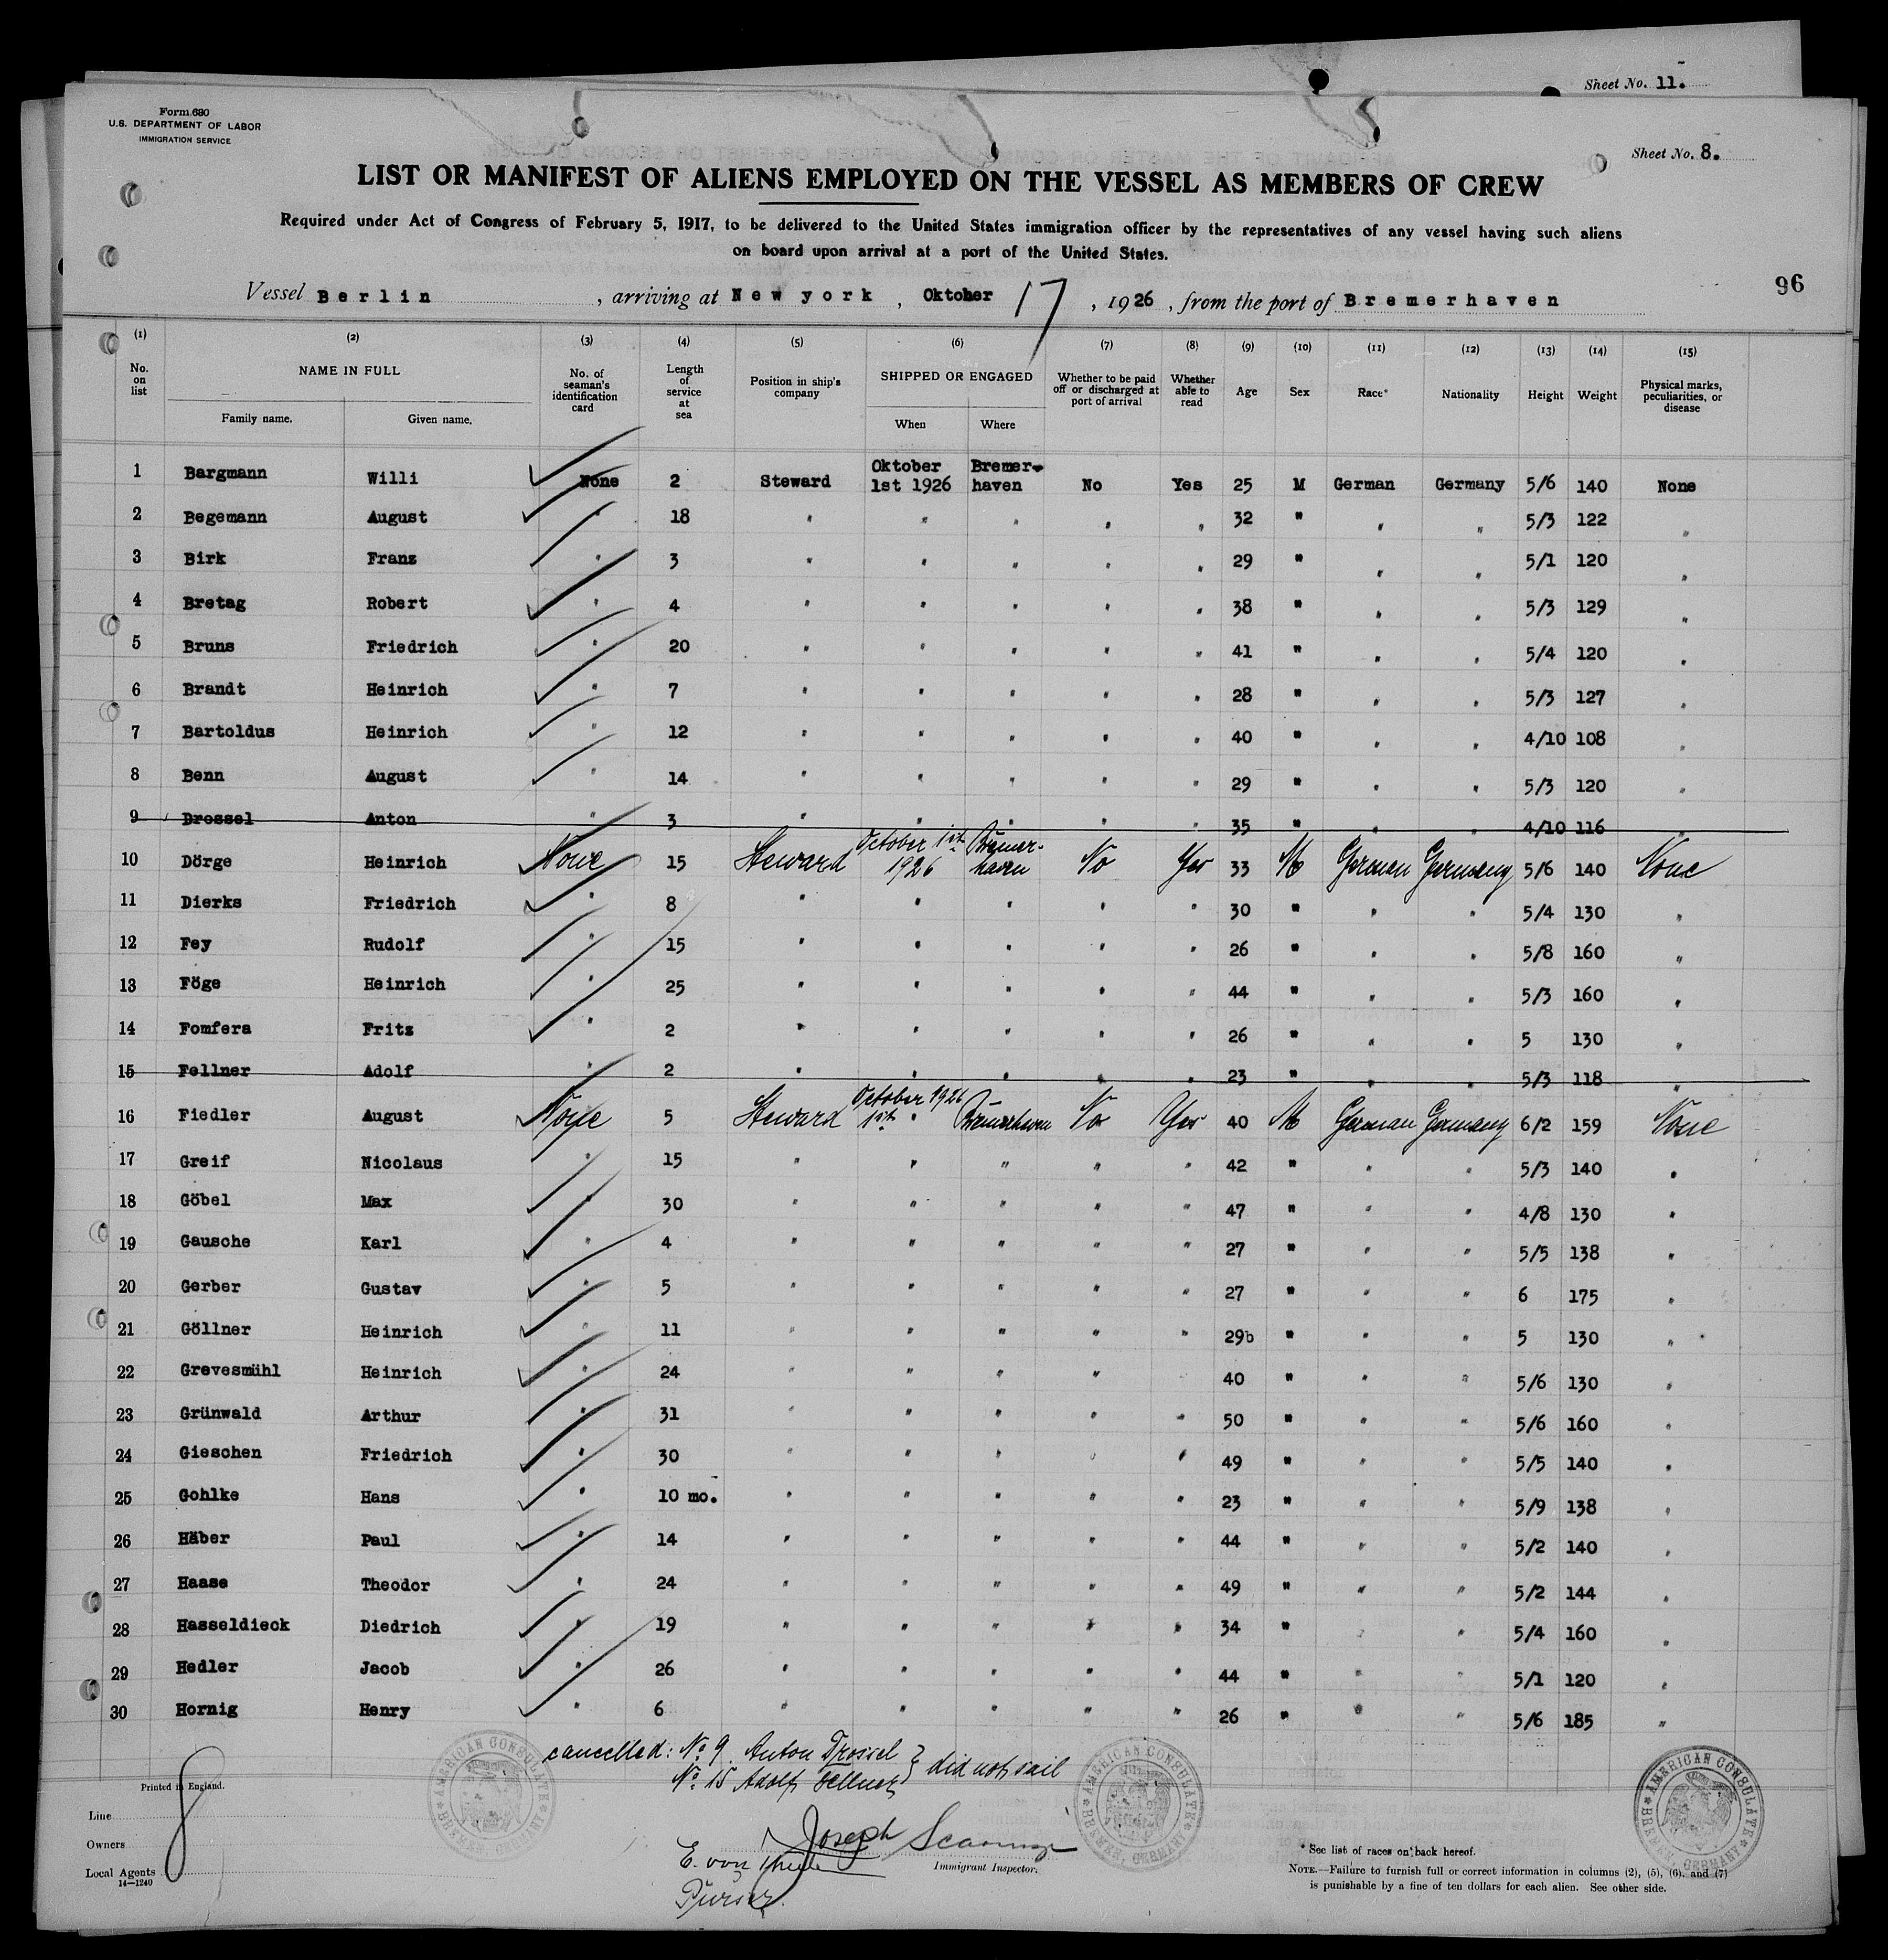 Sheet No. 11.
Form 680
U.S. DEPARTMENT OF LABOR
IMMIGRATION SERVICE
Sheet No. 8.
LIST OR MANIFEST OF ALIENS EMPLOYED ON THE VESSEL AS MEMBERS OF CREW
Required under Act of Congress of February 5, 1917, to be delivered to the United States immigration officer by the representatives of any vessel having such aliens
on board upon arrival at a port of the United States.
96
Vessel Berlin, arriving at New york, Oktober 17, 1926, from the port of Bremerhaven
(1) (2) (3) (4) (5) (6) (7) (8) (9) (10) (11) (12) (13) (14) (15)
No. on list NAME IN FULL Family name. Given name. No. of seaman's identification card Length of service at sea Position in ship's company SHIPPED OR ENGAGED When Where Whether to be paid off or discharged at port of arrival Whether able to read Age Sex Race* Nationality Height Weight Physical marks, peculiarities, or disease
1 Bargmann Willi None 2 Steward Oktober 1st 1926 Bremer-haven No Yes 25 M German Germany 5/6 140 None
2 Begemann August " 18 " " " " " 32 " " " 5/3 122 "
3 Birk Franz " 3 " " " " " 29 " " " 5/1 120 "
4 Bretag Robert " 4 " " " " " 38 " " " 5/3 129 "
5 Bruns Friedrich " 20 " " " " " 41 " " " 5/4 120 "
6 Brandt Heinrich " 7 " " " " " 28 " " " 5/3 127 "
7 Bartoldus Heinrich " 12 " " " " " 40 " " " 4/10 108 "
8 Benn August " 14 " " " " " 29 " " " 5/3 120 "
9 Drossel Anton " 3 " " " " " 35 " " " 4/10 116 "
10 Dörge Heinrich None 15 Steward October 1st 1926 Bremer-haven No Yes 33 M German Germany 5/6 140 None
11 Dierks Friedrich " 8 " " " " " 30 " " " 5/4 130 "
12 Fey Rudolf " 15 " " " " " 26 " " " 5/8 160 "
13 Föge Heinrich " 25 " " " " " 44 " " " 5/3 160 "
14 Fomfera Fritz " 2 " " " " " 26 " " " 5 130 "
15 Fellner Adolf " 2 " " " " " 23 " " " 5/3 118 "
16 Fiedler August None 5 Steward October 1926 1st " Bremerhaven No Yes 40 M German Germany 6/2 159 None
17 Greif Nicolaus " 15 " " " " " 42 " " " 5/3 140 "
18 Göbel Max " 30 " " " " " 47 " " " 4/8 130 "
19 Gausche Karl " 4 " " " " " 27 " " " 5/5 138 "
20 Gerber Gustav " 5 " " " " " 27 " " " 6 175 "
21 Göllner Heinrich " 11 " " " " " 29b " " " 5 130 "
22 Grevesmühl Heinrich " 24 " " " " 40 " " " 5/6 130 "
23 Grünwald Arthur " 31 " " " " " 50 " " " 5/6 160 "
24 Gieschen Friedrich " 30 " " " " " 49 " " " 5/5 140 "
25 Gohlke Hans " 10 mo. " " " " " 23 " " " 5/9 138 "
26 Häber Paul " 14 " " " " " 44 " " " 5/2 140 "
27 Haase Theodor " 24 " " " " " 49 " " " 5/2 144 "
28 Hasseldieck Diedrich " 19 " " " " " 34 " " " 5/4 160 "
29 Hedler Jacob " 26 " " " " " 44 " " " 5/1 120 "
30 Hornig Henry " 6 " " " " " 26 " " " 5/6 185 "
cancelled: No 9. Anton Drossel } did not sail
No 15 Adolf Fellner
Printed in England.
8
Line
Owners
Local Agents
14—1240
Joseph
E. von
Purser.
Immigrant Inspector.
AMERICAN CONSULATE BREMEN, GERMANY
AMERICAN CONSULATE BREMEN, GERMANY
AMERICAN CONSULATE BREMEN, GERMANY
* See list of races on back hereof.
NOTE.—Failure to furnish full or correct information in columns (2), (5), (6), and (7)
is punishable by a fine of ten dollars for each alien. See other side.